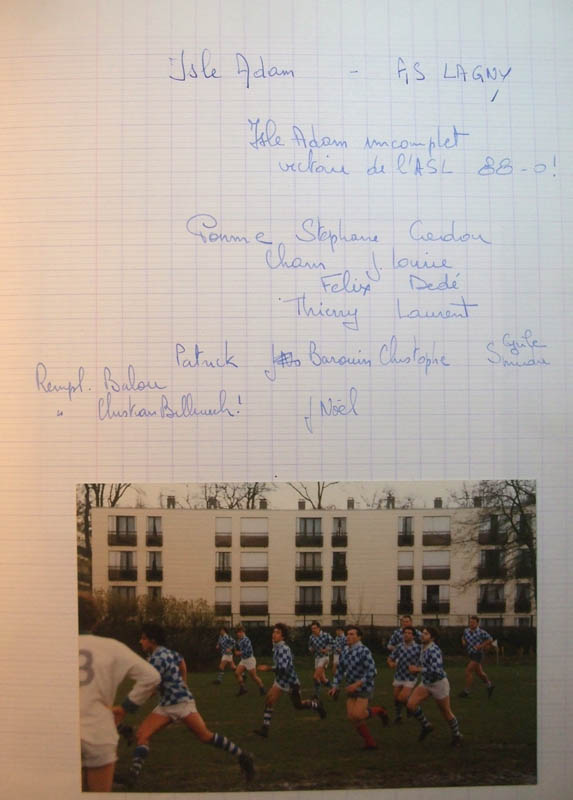 Isle Adam - AS LAGNY
Isle Adam incomplet
victoire de l'ASL 88-0!
Pomme Stephane
Cham J. Louise
Felix Dedé
Thierry Laurent
Patrick Barouin Christophe
Rempl. Balou
" Christian J Noël
8